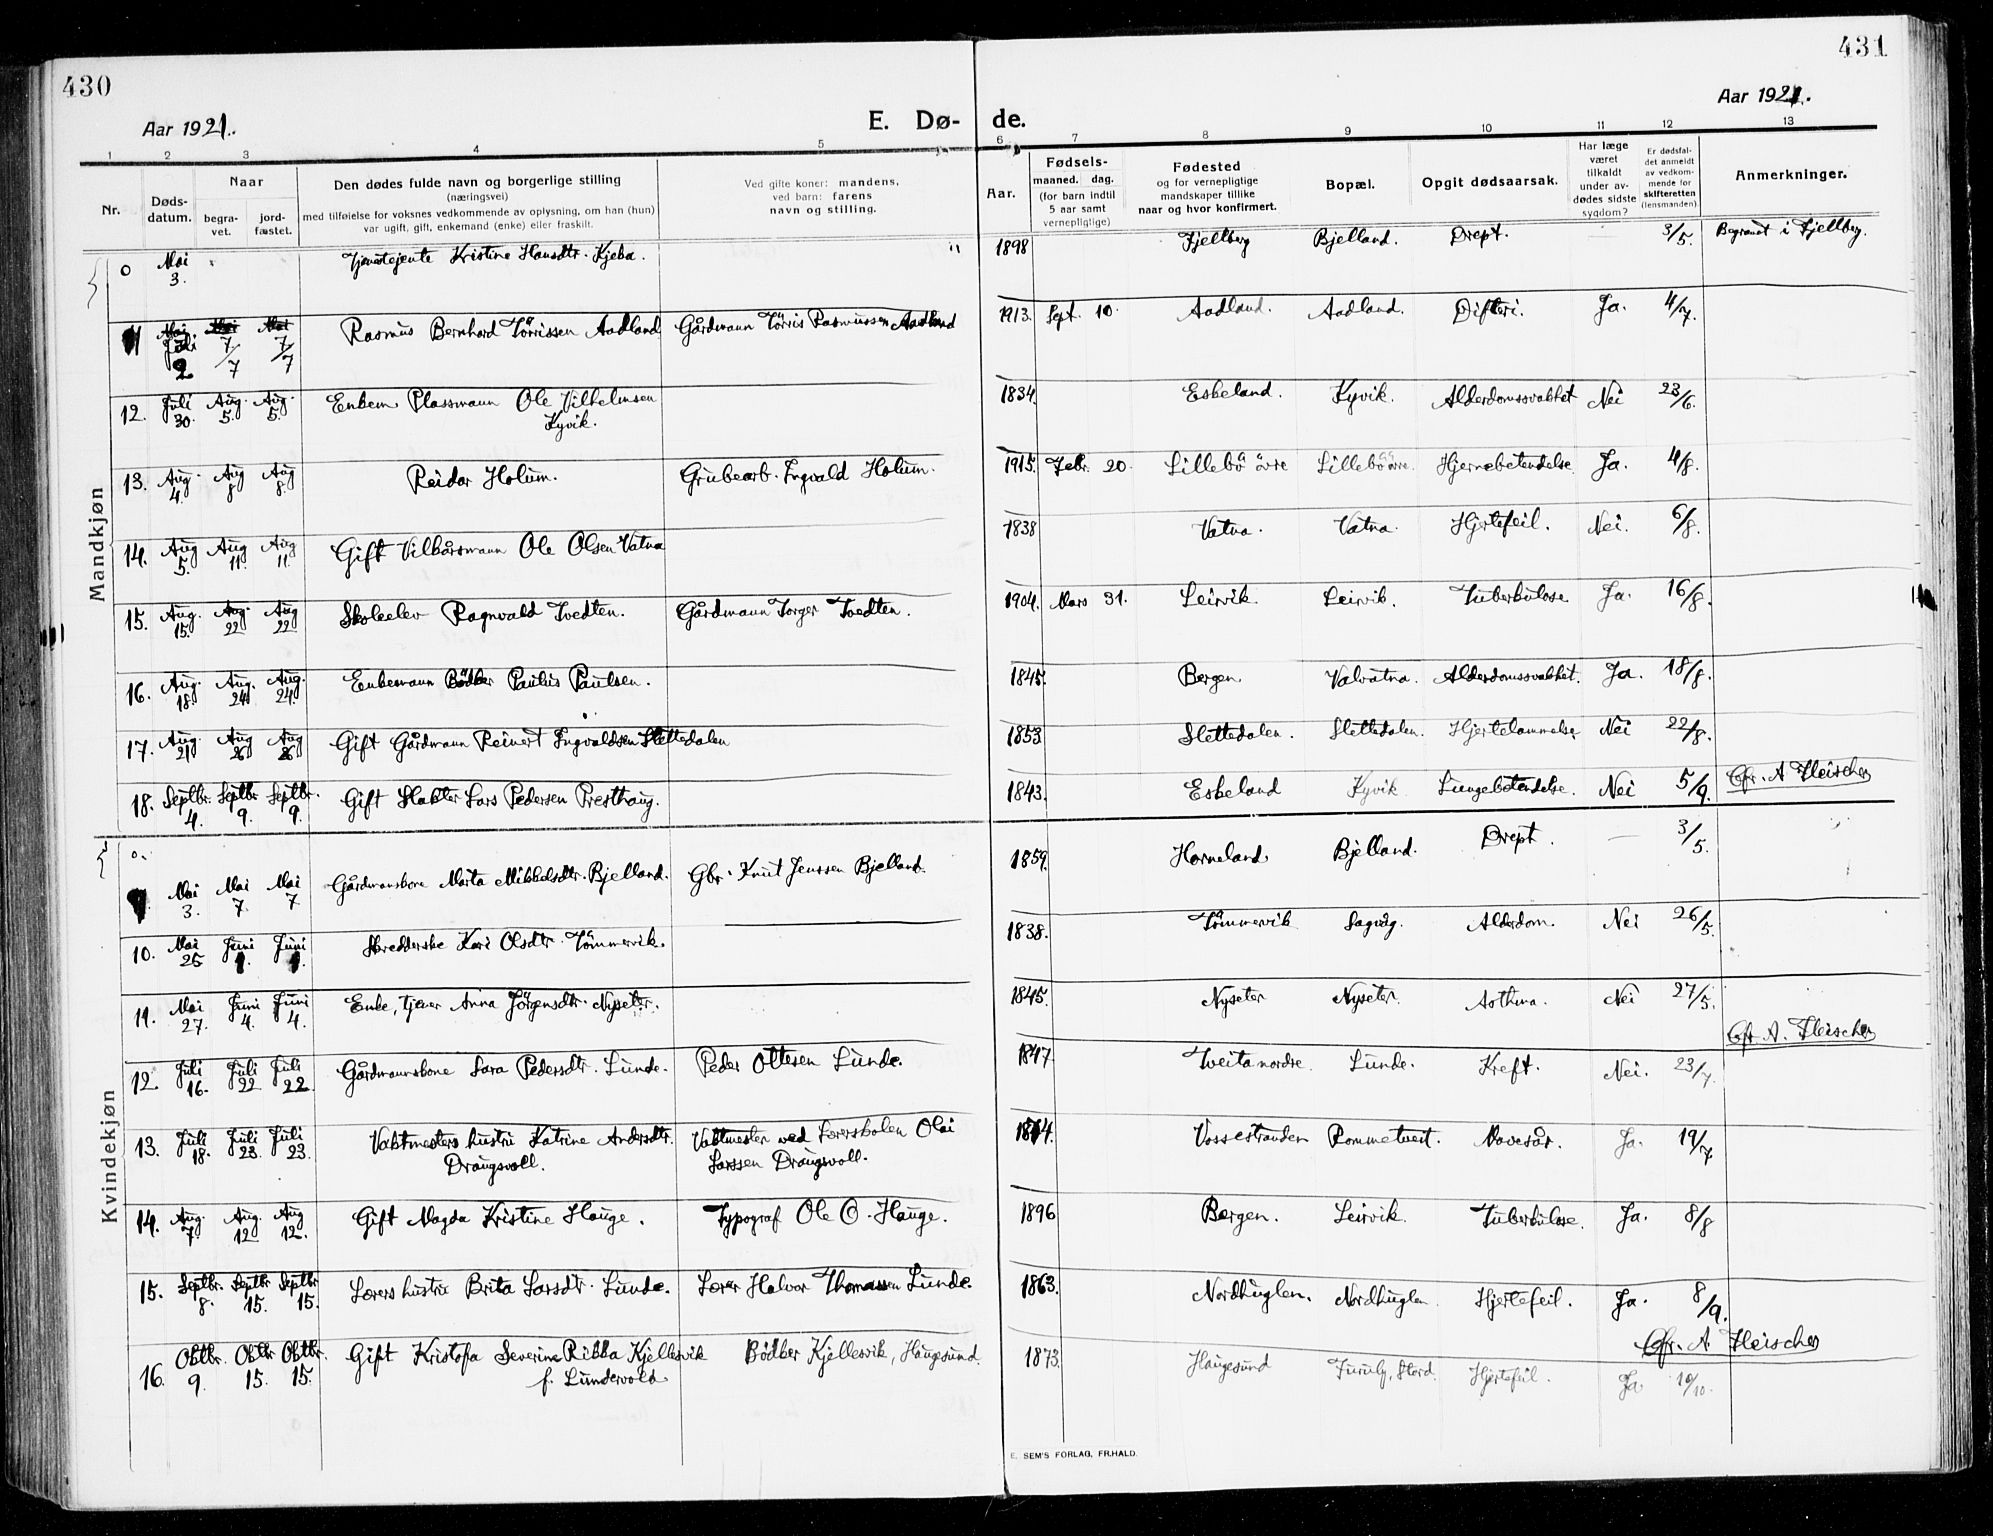 430
431
Aar 1921.
E. Dø- de.
Aar 1921.
1 2 3 4 5 6 7 8 9 10 11 12 13
Nr.
Døds-
datum.
Naar
begra-
vet.
jord-
fæstet.
Den dødes fulde navn og borgerlige stilling
(næringsvei)
med tilføielse for voksnes vedkommende av oplysning, om han (hun)
var ugift, gift, enkemand (enke) eller fraskilt.
Ved gifte koner: mandens,
ved barn: farens
navn og stilling.
Aar.
Fødsels-
maaned. dag.
(for barn indtil
5 aar samt
vernepligtige)
Fødested
og for vernepligtige
mandskaper tillike
naar og hvor konfirmert.
Bopæl.
Opgit dødsaarsak.
Har læge
været
tilkaldt
under av-
dødes sidste
sygdom?
Er dødsfal-
det anmeldt
av vedkom-
mende for
skifteretten
(lensmanden)
Anmerkninger.
Mandkjøn
0 Mai 3. Tjenestejente Kristine Hansdtr. Kjeba. " 1898 Fjellberg Bjelland. Drept. — 3/5. Begravet i Fjellberg.
11 Juli 2 7/7 7/7 Rasmus Bernhard Törrissen Aadland Gårdmann Törris Rasmussen Aadland 1913. Sept. 10. Aadland. Aadland. Difteri. Ja. 4/7.
12. Juli 30. Aug. 5. Aug. 5. Enkem. Plassmann Ole Vilhelmsen
Kyvik. 1834 Eskeland. Kyvik. Alderdomssvakhet Nei 23/6.
13. Aug. 4. Aug 8 Aug 8. Reidar Holum. Grubearb. Ingvald Holum. 1915. Febr. 20. Lillebö övre Lillebö övre. Hjernebetendelse. Ja. 4/8.
14. Aug 5. Aug 11. Aug 11. Gift Vilkårsmann Ole Olsen Vatna 1838 Vatna. Vatna. Hjertefeil. Nei. 6/8.
15. Aug. 15. Aug. 22 Aug 22 Skoleelev Ragnvald Tvedten. Gårdmann Torger Tvedten. 1904. Mars 31. Leirvik. Leirvik. Tuberkulose Ja. 16/8.
16. Aug. 18. Aug. 24 Aug. 24. Enkemann Bödker Paulus Paulsen. 1845. Bergen. Valvatna. Alderdomssvakhet. Ja. 18/8.
17. Aug. 21 Aug 26 Aug 26 Gift Gårdmann Reinert Ingvaldsen Slettedalen 1853 Slettedalen. Slettedalen. Hjertelammelse Nei 22/8.
18. Septbr. 4. Septbr 9. Septbr. 9. Gift Slakter Lars Pedersen Presthaug. 1843. Eskeland Kyvik Lungebetendelse. Nei 5/9. Cfr. A Fleischer
Kvindekjøn
0. 9. Mai 3. Mai 7. Mai 7 Gårdmanskone Marta Mikkelsdtr. Bjelland. Gbr. Knut Jenssen Bjelland. 1859. Horneland Bjelland. Drept. — 3/5.
10. Mai 25 Juni 1. Juni 1. Skredderske Kari Olsdtr. Tömmervik. 1838. Tömmervik Sagvåg. Alderdom. Nei 26/5.
11. Mai 27. Juni 4. Juni 4. Enke, tjener Anna Jörgensdtr. Nyseter. 1845. Nyseter Nyseter. Asthma. Nei 27/5.
Cfr A. Fleischer
12. Juli 16. Juli 22 Juli 22. Gårdmannskone Sara Pedersdtr. Lunde. Peder Ottesen Lunde. 1847 Tveita nordre. Lunde. Kreft. Nei. 23/7.
13. Juli 18. Juli 23. Juli 23. Vaktmesters hustru Katrine Andersdtr.
Draugsvoll. Vaktmester ved Lærerskolen Olai
Larssen Draugsvoll. 1874. Vossestranden Rommetveit. Mavesår. Ja. 19/7
14. Aug. 7 Aug. 12 Aug 12. Gift Magda Kristine Hauge. Typograf Ole O. Hauge. 1896 Bergen. Leirvik. Tuberkulose. Ja. 8/8
15. Septbr. 8. Septbr 15. Septbr 15. Lærers hustru Brita Larsdtr. Lunde. Lærer Halvor Thomassen Lunde. 1863. Nordhuglen. Nordhuglen. Hjertefeil. Ja. 8/9.
Cfr. A Fleischer
16. Oktbr. 9. Oktbr 15. Oktbr. 15. Gift Kristofa Severine Rikka Kjellesvik
f. Lundervold. Bödker Kjellesvik, Haugesund. 1873. Haugesund Furuly, Stord. Hjertefeil. Ja 10/10.
E. SEM'S FORLAG, FR.HALD.